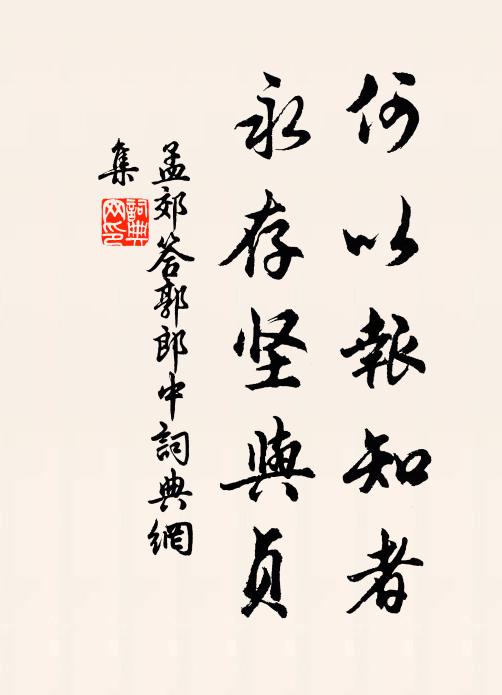 何以報知者
永存坚與贞
孟郊答郭郎中詞典網
集
詞典网印